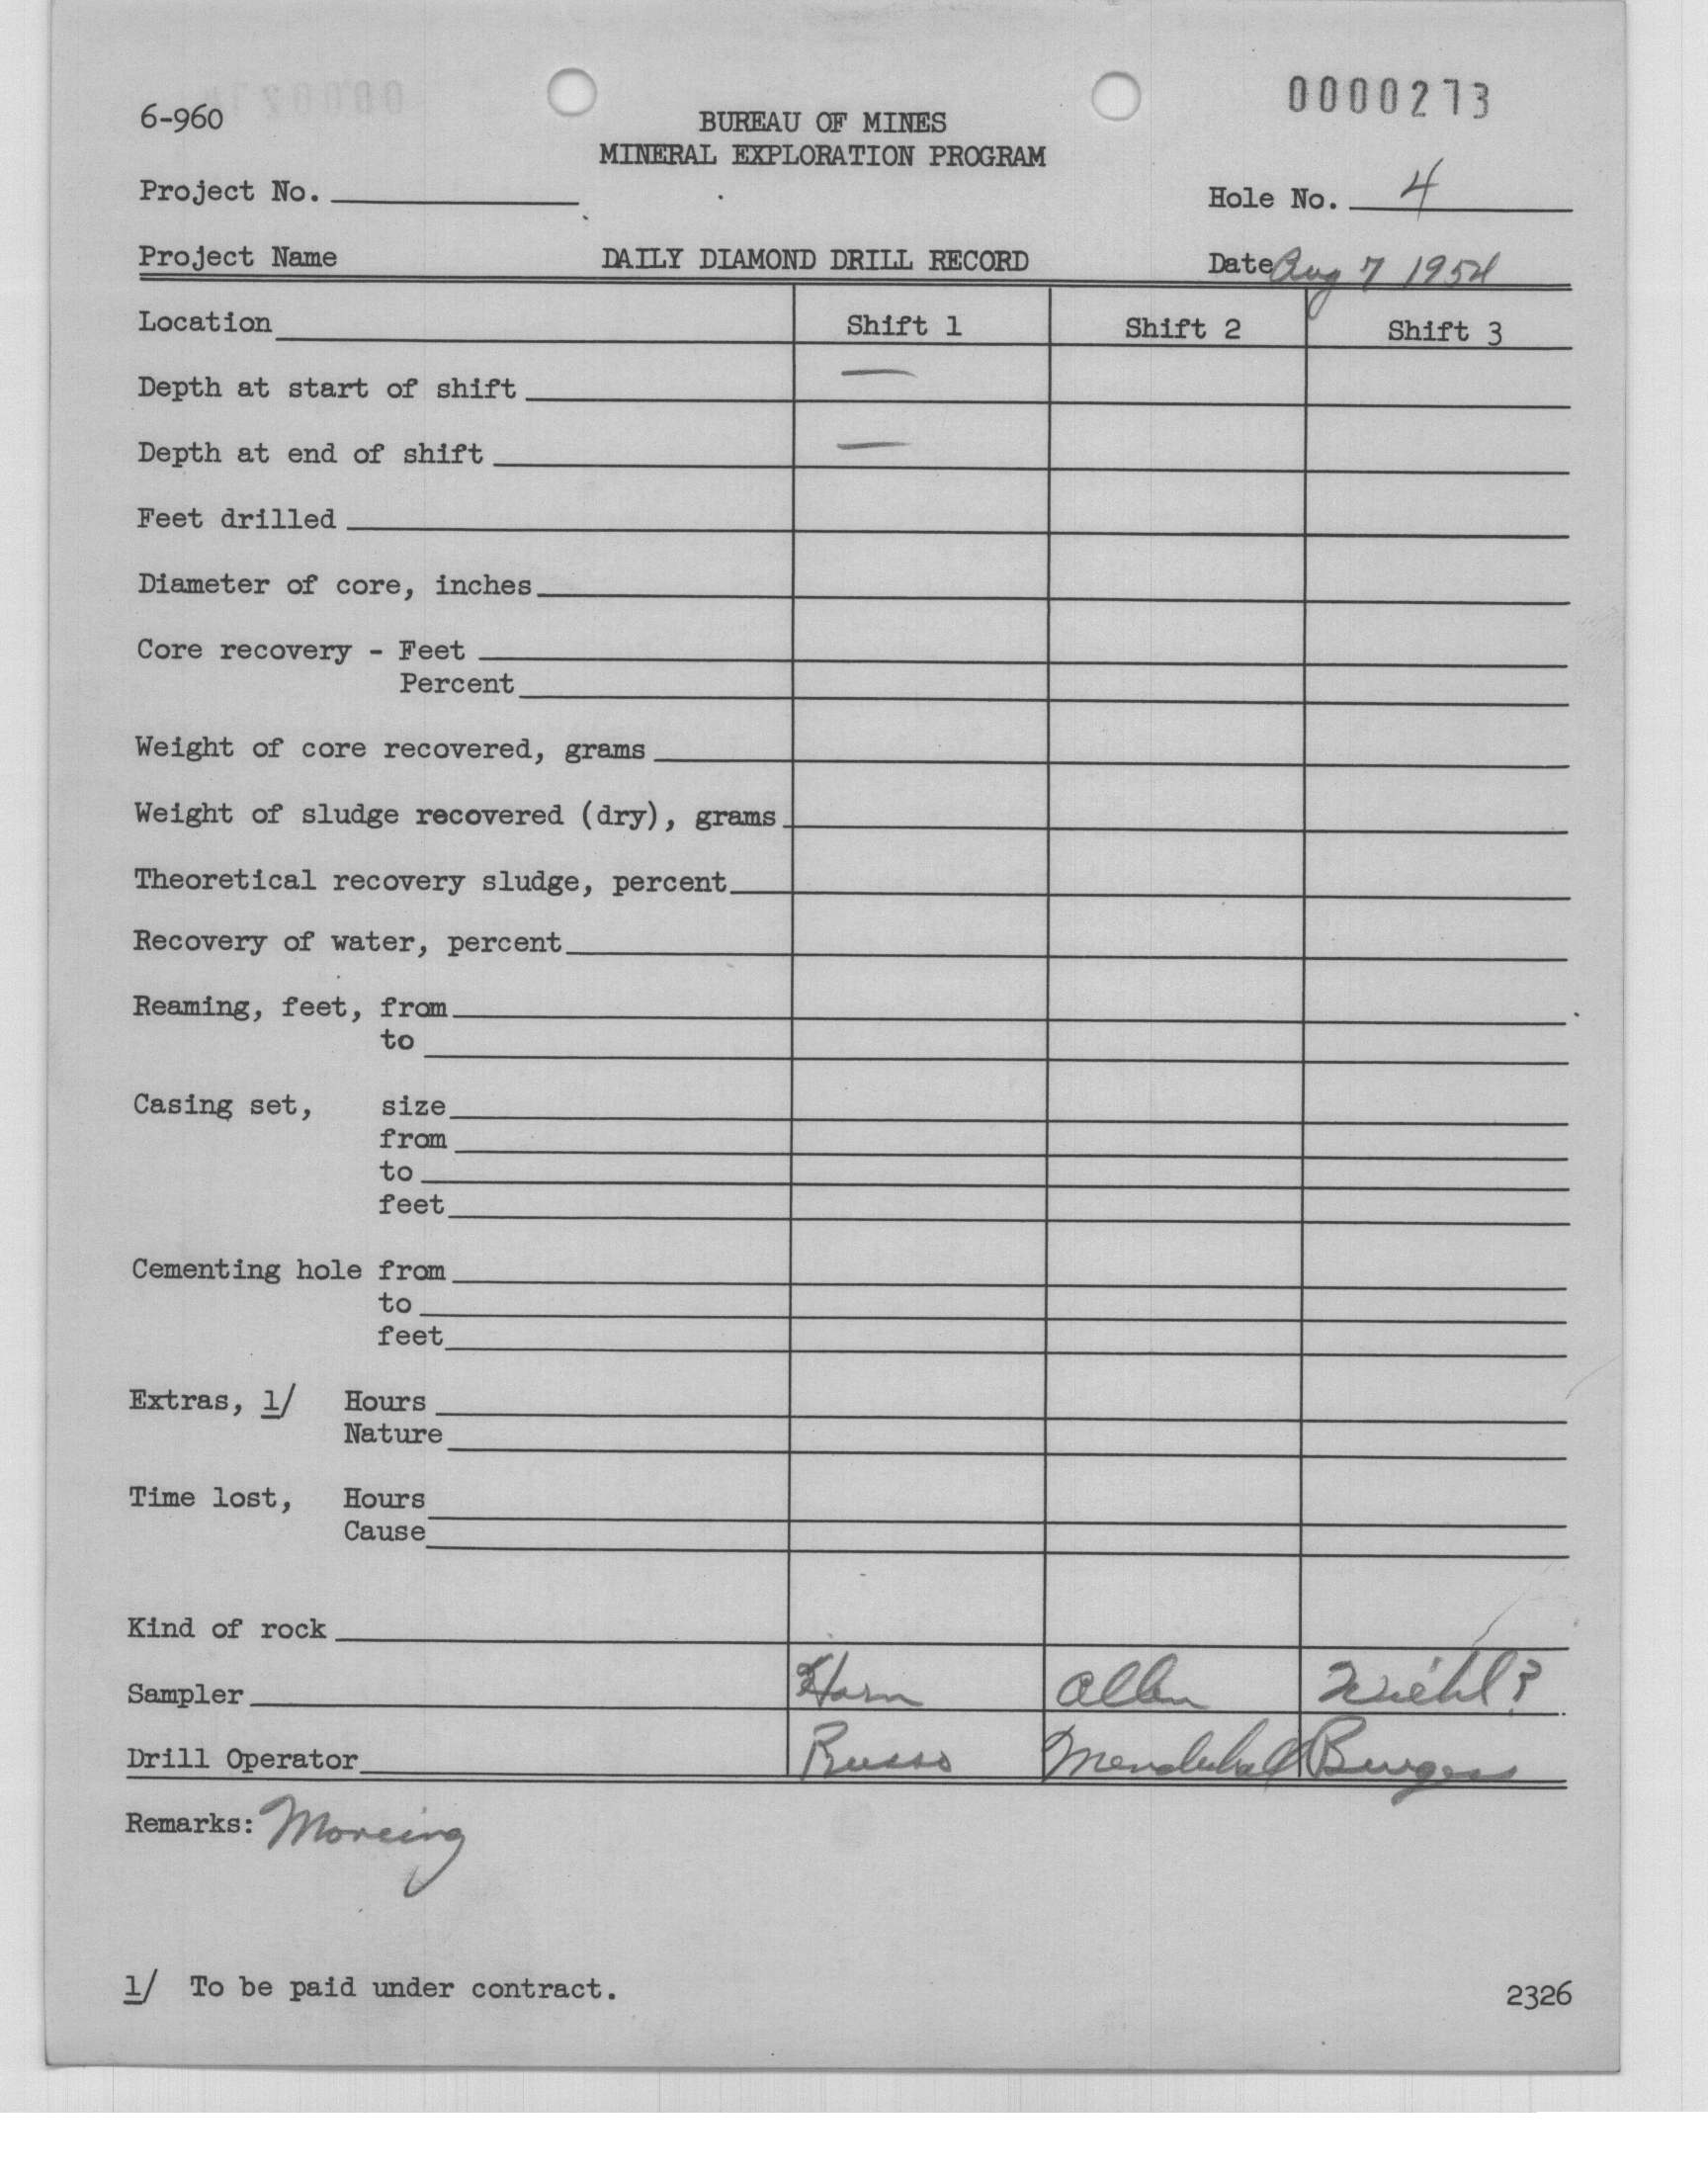 0000273
6-960
BUREAU OF MINES
MINERAL EXPLORATION PROGRAM
Project No.
Hole No. 4
Project Name DAILY DIAMOND DRILL RECORD Date Aug 7 1954
Location Shift 1 Shift 2 Shift 3
Depth at start of shift —
Depth at end of shift —
Feet drilled
Diameter of core, inches
Core recovery - Feet
Percent
Weight of core recovered, grams
Weight of sludge recovered (dry), grams
Theoretical recovery sludge, percent
Recovery of water, percent
Reaming, feet, from
to
Casing set, size
from
to
feet
Cementing hole from
to
feet
Extras, 1/ Hours
Nature
Time lost, Hours
Cause
Kind of rock
Sampler Horn Allen
Drill Operator Russo Mendenhall Burgess
Remarks:
1/ To be paid under contract.
2326